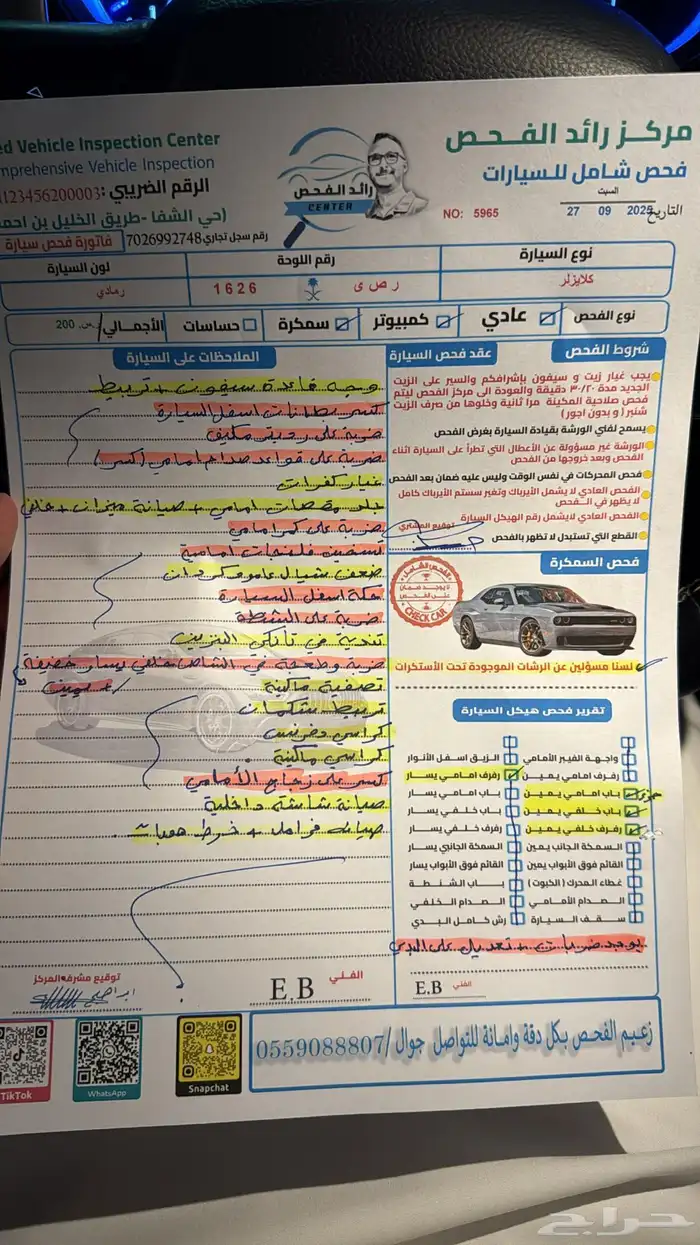 مركز رائد الفحص
فحص شامل للسيارات
ed Vehicle Inspection Center
mprehensive Vehicle Inspection
الرقم الضريبي :1123456200003
(حي الشفا -طريق الخليل بن احمد
رقم سجل تجاري 7026992748
فاتورة فحص سيارة
رائد الفحص
CENTER
NO: 5965
السبت
التاريخ 27 09 2025
نوع السيارة
رقم اللوحة
لون السيارة
كلايزلر
ر ص ى
1626
رمادي
نوع الفحص
عادي
كمبيوتر
سمكرة
حساسات
الأجمالي/ر.س. 200
شروط الفحص
عقد فحص السيارة
يجب غيار زيت و سيفون بإشرافكم والسير على الزيت
الجديد مدة ٣٠/٢٠ دقيقة والعودة الى مركز الفحص ليتم
فحص صلاحية المكينة مرا ثانية وخلوها من صرف الزيت
شنبر ( و بدون اجور)
يسمح لفني الورشة بقيادة السيارة بغرض الفحص
الورشة غير مسؤولة عن الأعطال التي تطرأ على السيارة اثناء
الفحص وبعد خروجها من الفحص
فحص المحركات في نفس الوقت وليس عليه ضمان بعد الفحص
الفحص العادي لا يشمل الأيرباك وتغير سستم الأيرباك كامل
لا يظهر في الفحص
الفحص العادي لايشمل رقم الهيكل السيارة
توقيع المشتري
القطع التي تستبدل لا تظهر بالفحص
فحص السمكرة
الفحص الشامل
CHECK CAR
لسنا مسؤلين عن الرشات الموجودة تحت الأستكرات
تقرير فحص هيكل السيارة
واجهة الفيبر الأمامي
الزيق اسفل الأنوار
رفرف امامي يمين
رفرف امامي يسار
باب امامي يمين
باب امامي يسار
باب خلفي يمين
باب خلفي يسار
رفرف خلفي يمين
رفرف خلفي يسار
السمكة الجانب يمين
السمكة الجانبي يسار
القائم فوق الأبواب يمين
القائم فوق الأبواب يسار
غطاء المحرك (الكبوت)
باب الشنطة
الصدام الأمامي
الصدام الخلفي
سقف السيارة
رش كامل البدي
يوجد ضربات + تعديل على البدي
الفني
E.B
الملاحظات على السيارة
وجه قاعدة سيفون + تربيط
كسر بطانات اسفل السيارة
ضربة على رديتر مكيف
ضربة على قواعد صدام امامي (كسر)
غيار كفرات
جلد مقصات امامي + صيانة ميزان + خلفي
ضربة على كمر امامي
تسخين فلنجات امامية
ضعف شيال عامود كردان
حكة اسفل السيارة
ضربة على الشنطة
تندية في تانكي البنزين
ضربة وطعجة في الشاص خلفي يسار خفيفة
+ يمين
تصفية ماكينة
تربيط شكمان
كراسي دفرنس
كراسي ماكينة
كسر على زجاج الأمامي
صيانة شاشة داخلية
صيانة فرامل + خرط هوبات
توقيع مشرف المركز
ابراهيم
الفني
E.B
زعيم الفحص بكل دقة وامانة للتواصل جوال /0559088807
TikTok
WhatsApp
Snapchat
حراج